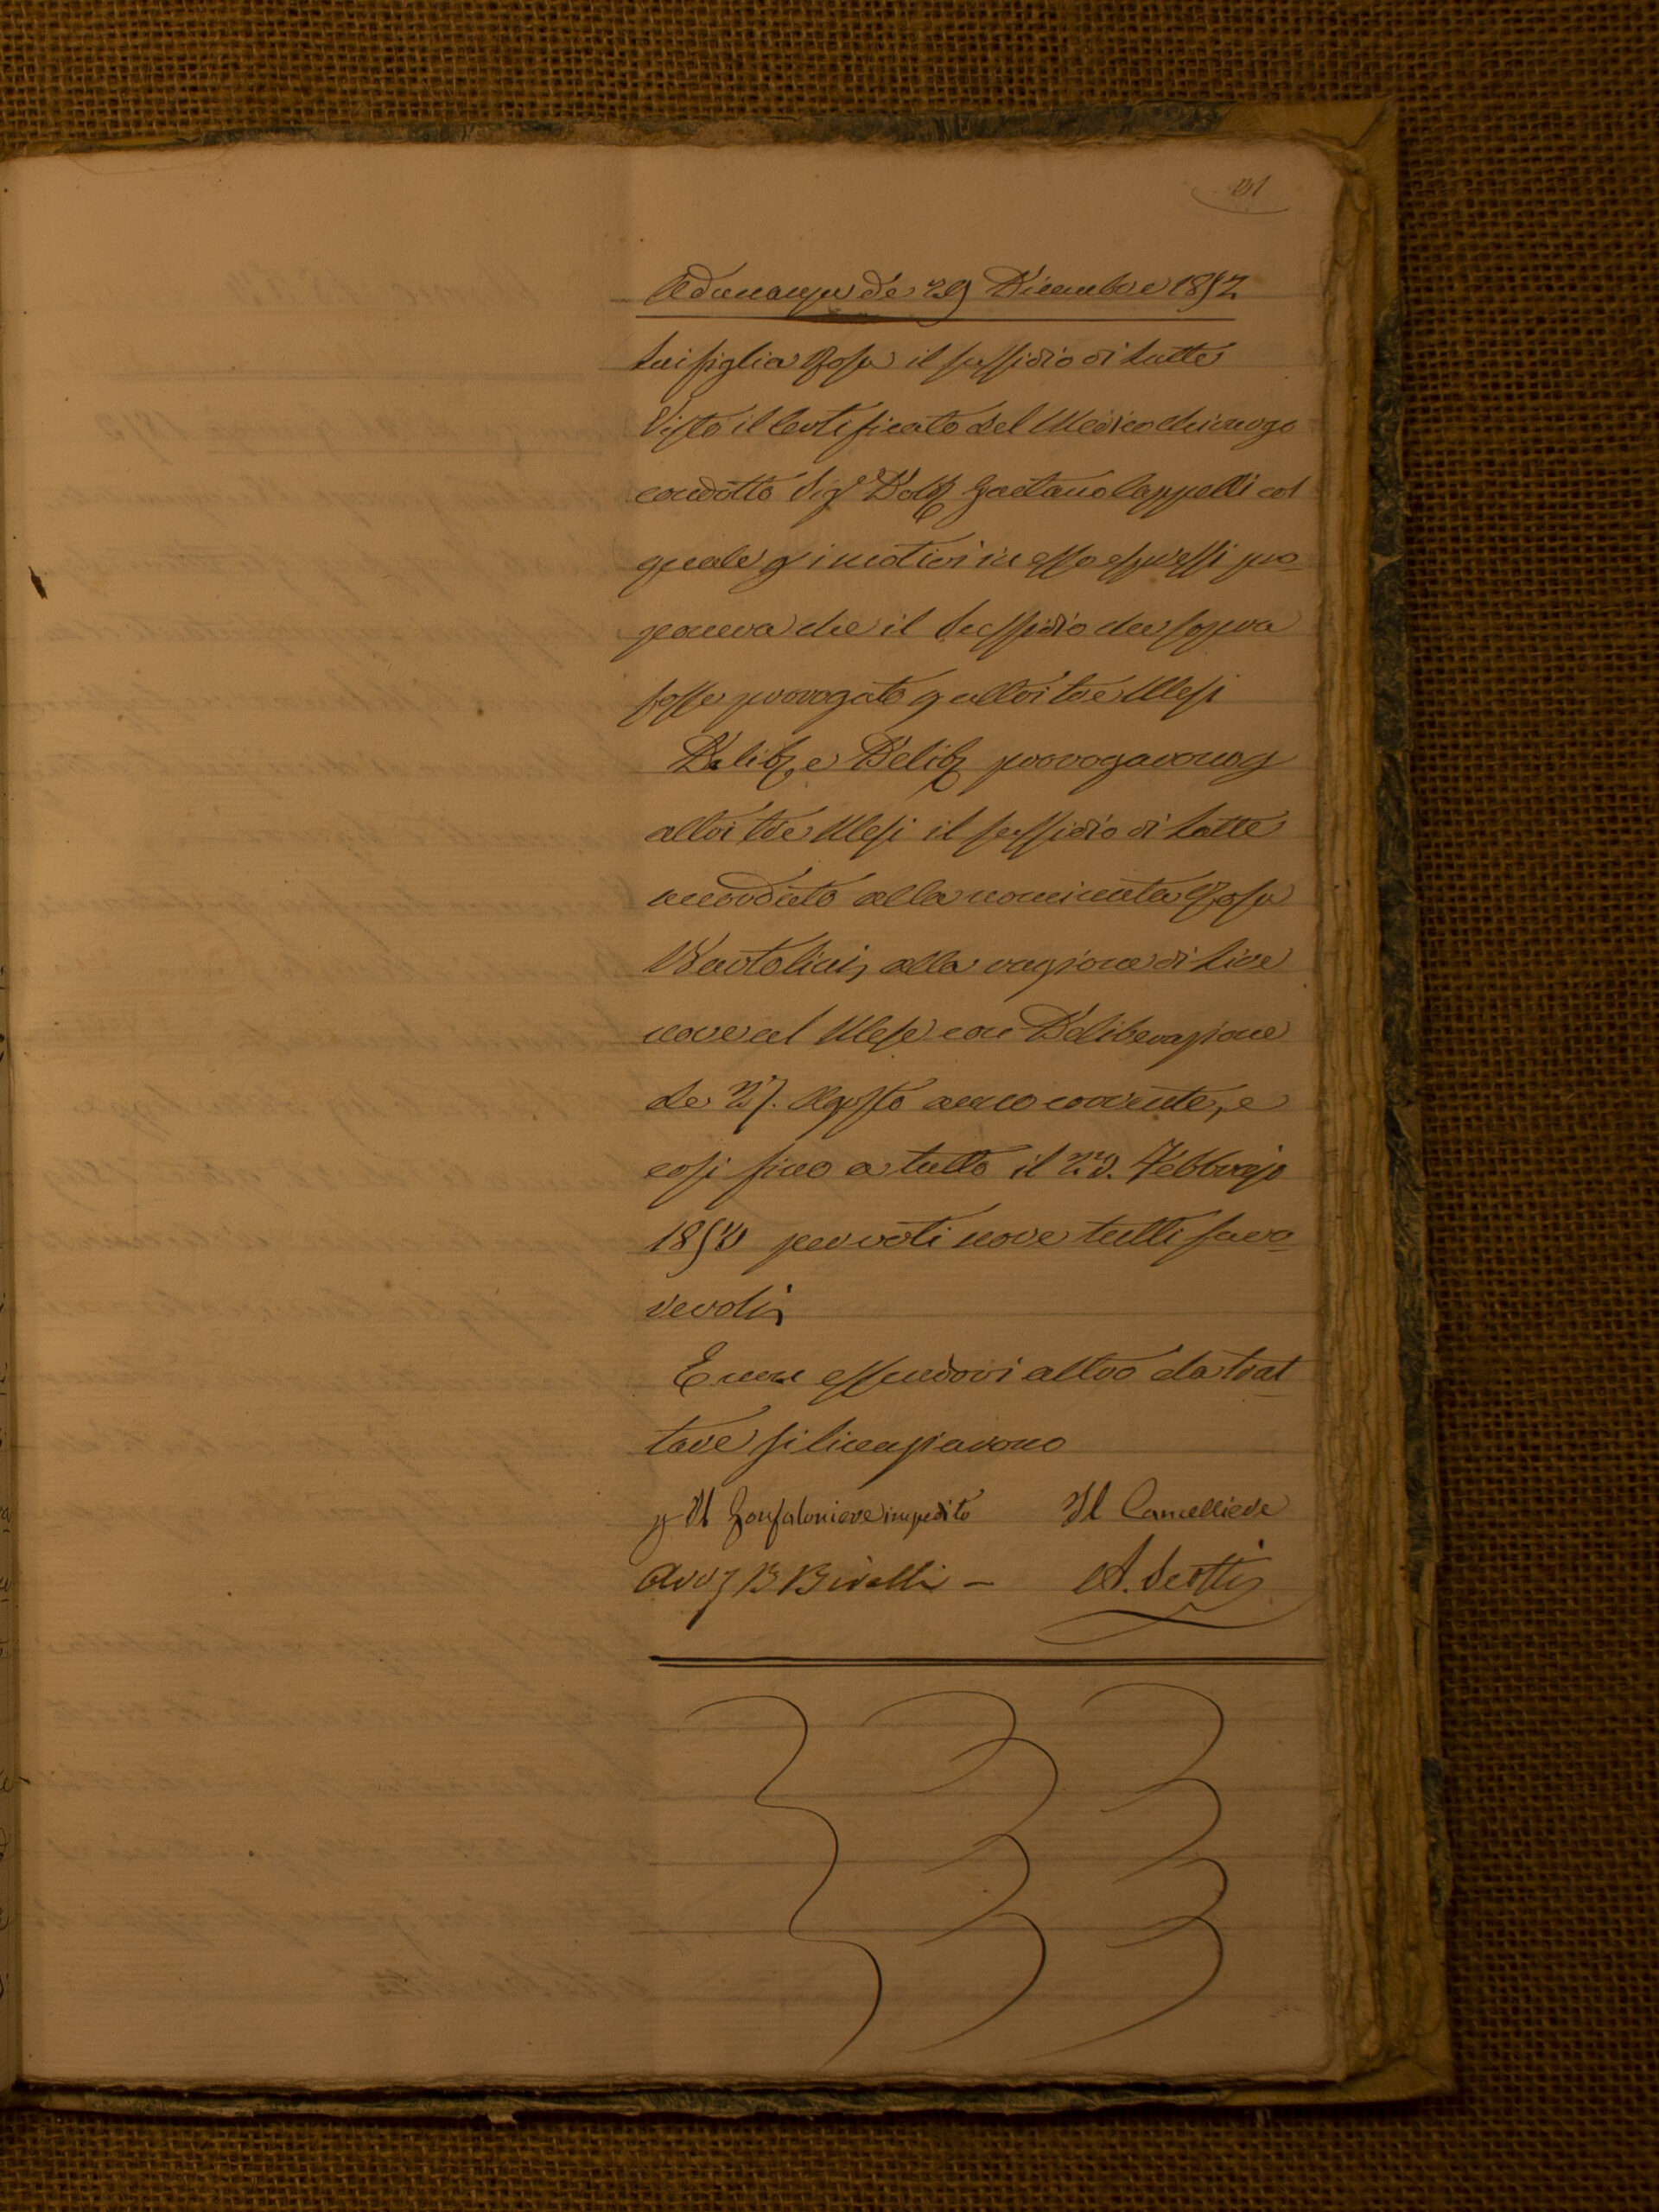 31
Adunanza de 29 Dicembre 1852
sua figlia Rosa il sussidio di latte
Visto il Certificato del Medico Chirurgo
condotto Sig.r Dott. Gaetano Cappelli col
quale p i motivi in esso espressi pro-
poneva che il Sussidio di sopra
fosse prorogato p altri tre Mesi
Delib. e Delib. prorogarono p
altri tre Mesi il sussidio di Latte
accordato alla nominata Rosa
Bartolini, alla ragione di Lire
nove al Mese con Deliberazione
de 27. Agosto anno corrente, e
così fino a tutto il 28. Febbrajo
1853 per voti nove tutti favo-
revoli
E non essendovi altro da trat
tare si licenziarono
p Il Gonfaloniere impedito Il Cancelliere